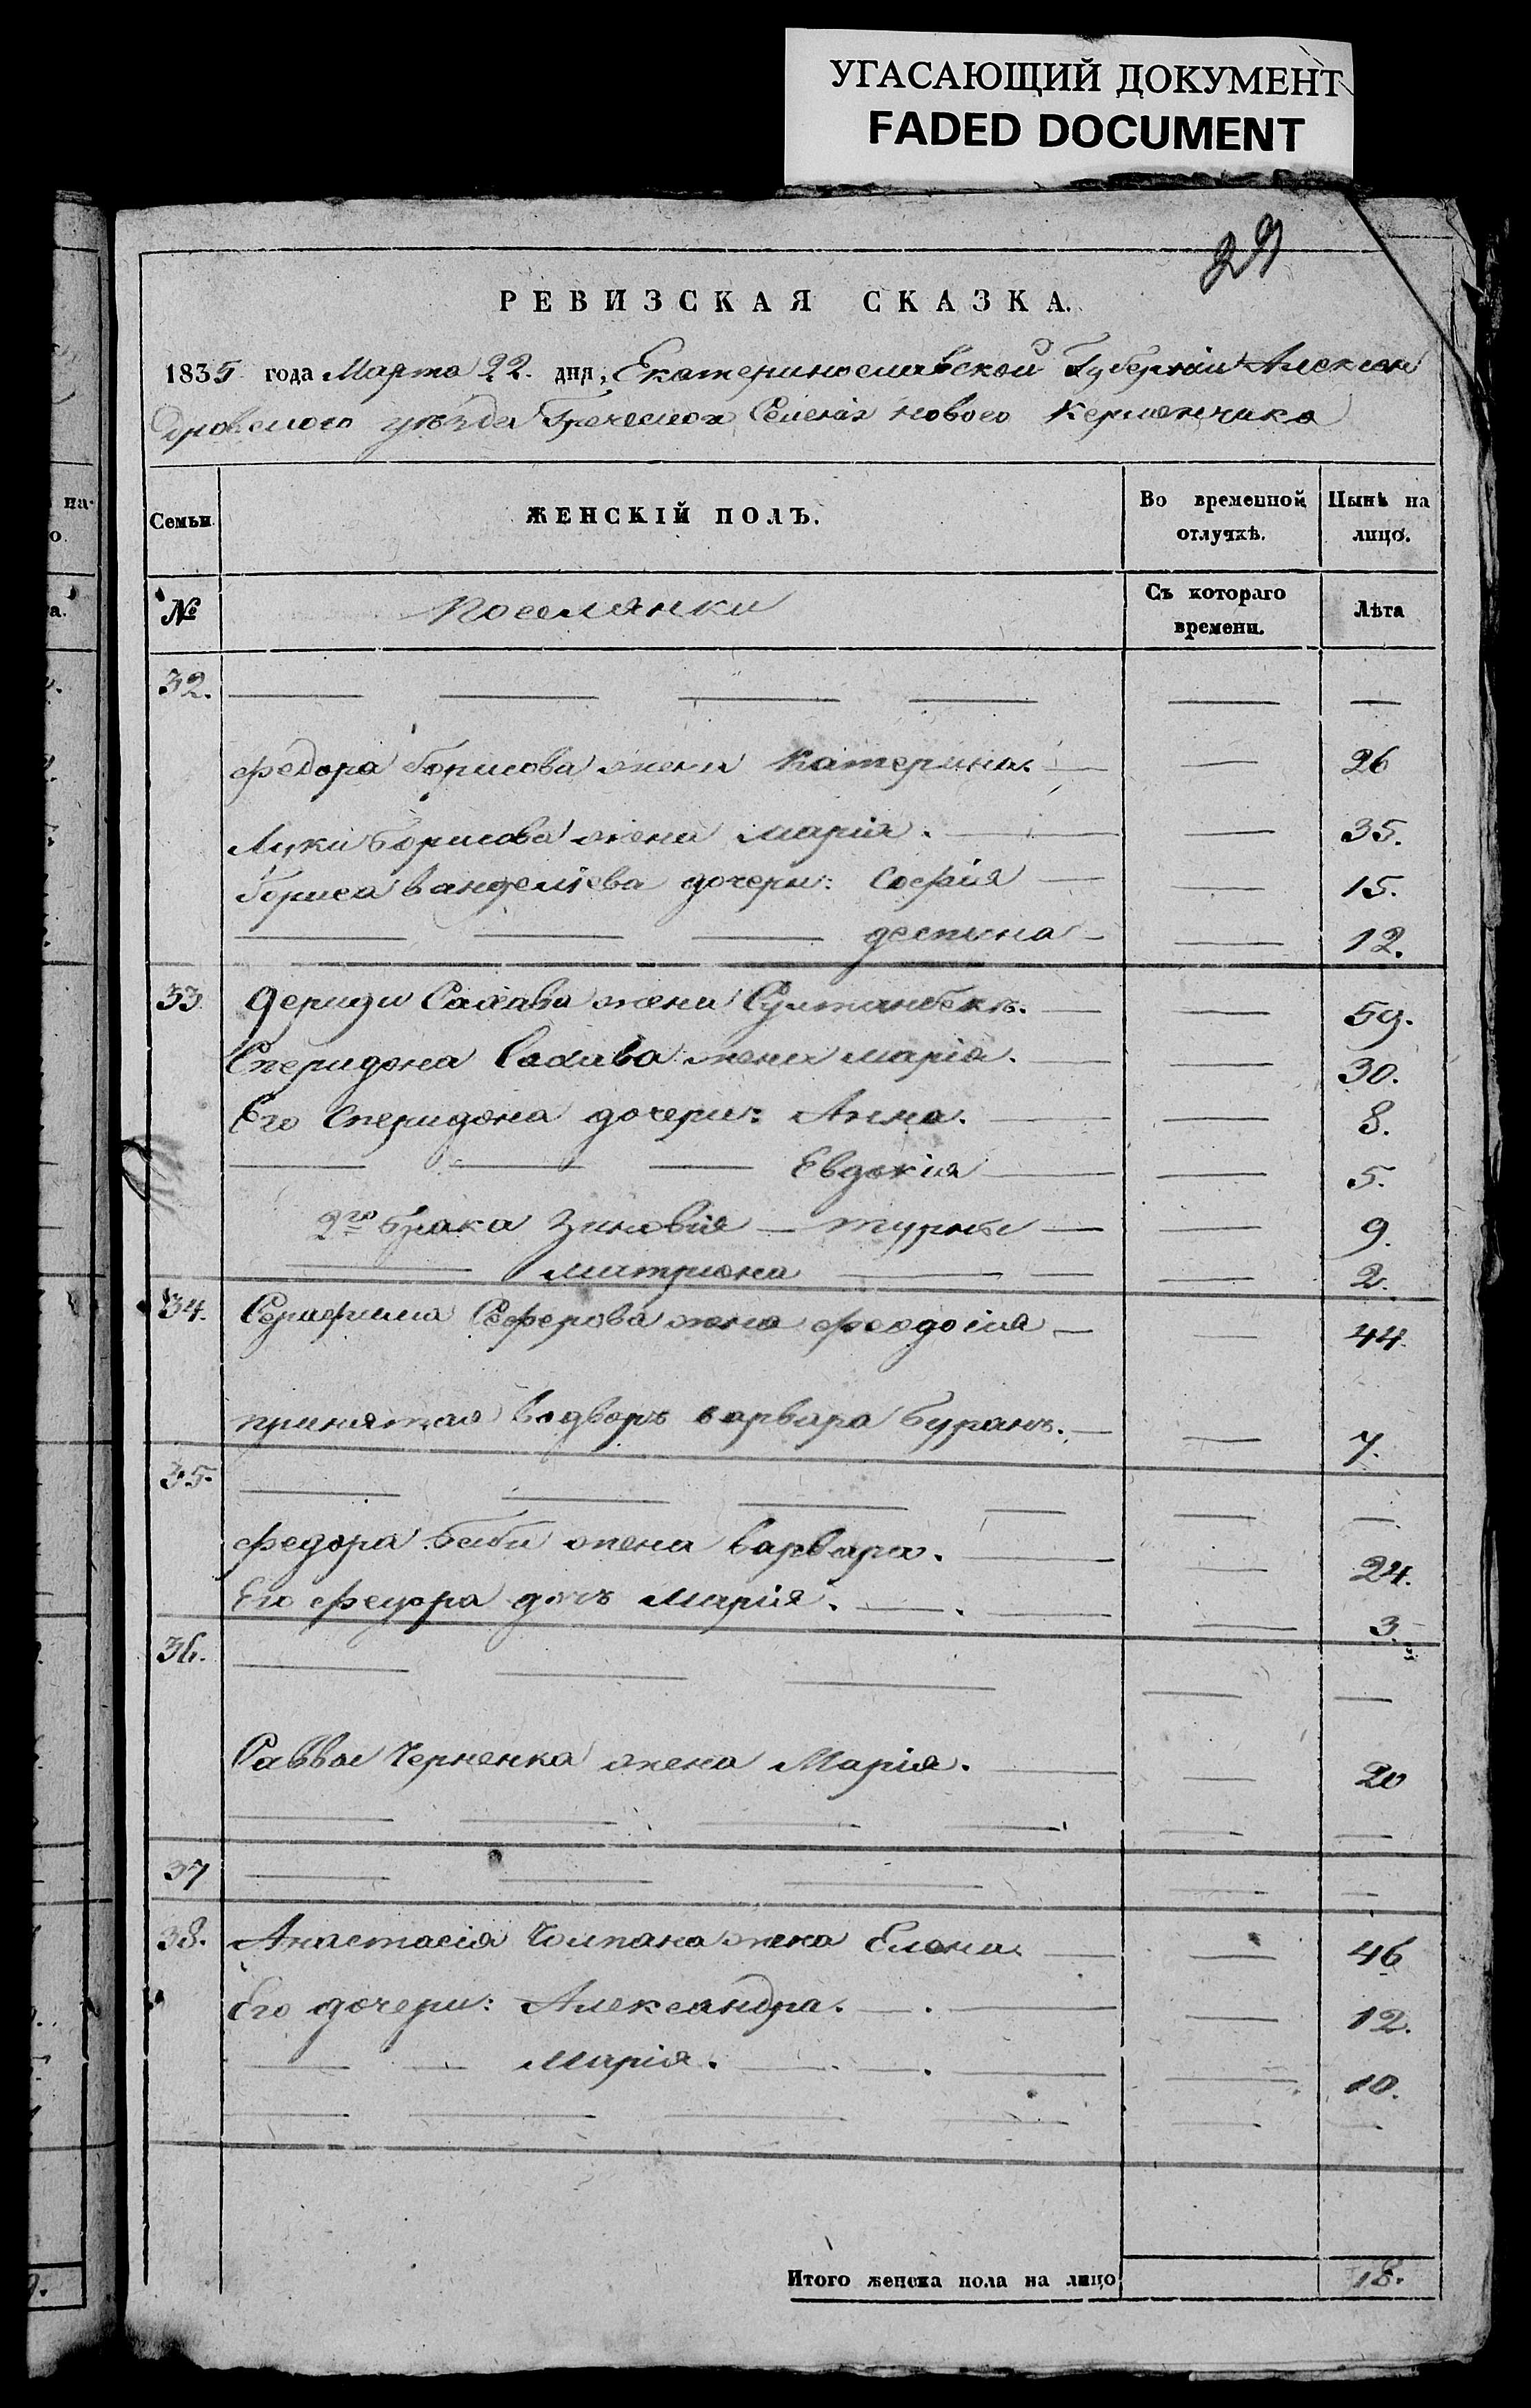 УГАСАЮЩИЙ ДОКУМЕНТ
FADED DOCUMENT
29
РЕВИЗСКАЯ СКАЗКА.
1835 года Марта 22. дня, Екатеринославской Губерніи Алексан
дровского уѣзда Греческой Селенія нового Керменчика
Семьи. ЖЕНСКІЙ ПОЛЪ. Во временной отлучкѣ. Нынѣ на лицо.
№ Поселянки Съ котораго времени. Лѣта
32.
Федора Борисова жена Катерина. 26
Луки Борисова жена Марія. 35.
Бориса Вангелиева дочери: Софія 15.
деспина 12.
33 Дериди Сахава жена Султанбекъ. 59.
Спиридона Сахава жена марія. 30.
Его Спиридона дочери: Анна. 8.
Евдокія 5.
2го брака Зиновія 9.
митриона 2.
34. Серафима Сеферова жена феодосія 44.
принятая водворъ варвара Буранъ. 7.
35.
Федора Биби жена варвара. 24.
Его Федора дочь Марія. 3.
36.
Саввы Черненка жена Марія. 20
37
38. Анастасія Чолпана жена Елена. 46
Его дочери: Александра. 12.
Марія. 10.
Итого женска пола на лицо 18.